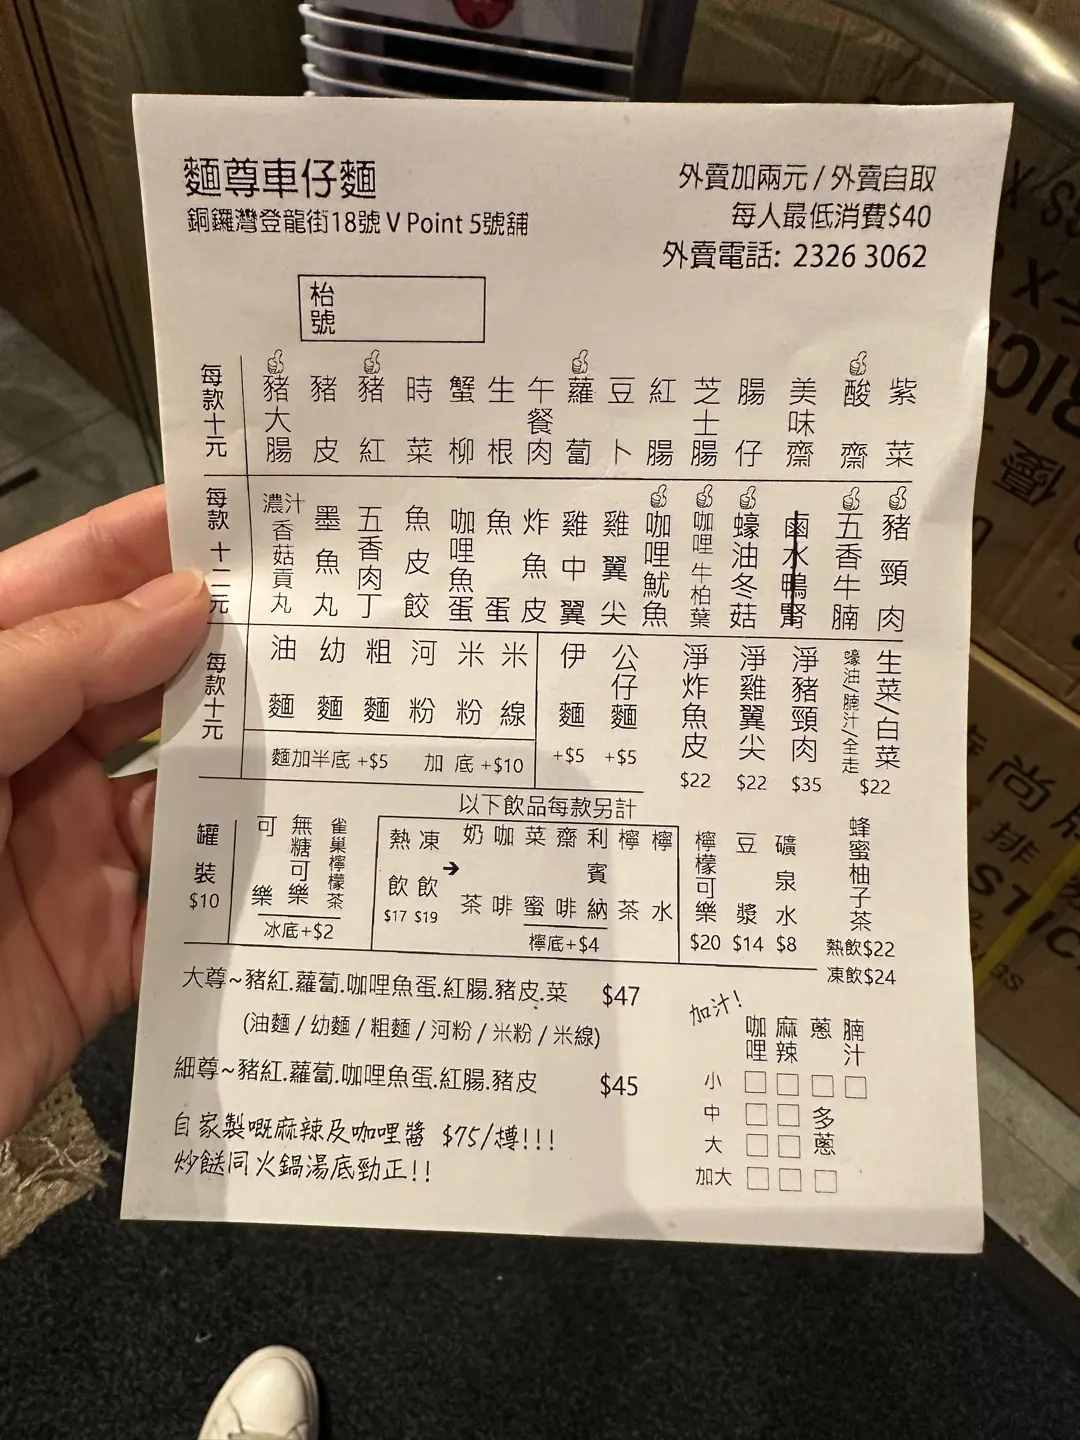 麵尊車仔麵
銅鑼灣登龍街18號 V Point 5號舖
外賣加兩元 / 外賣自取
每人最低消費$40
外賣電話: 2326 3062
枱號
每款十元
豬大腸
豬皮
豬紅
時菜
蟹柳
生根
午餐肉
蘿蔔
豆卜
紅腸
芝士腸
腸仔
美味齋
酸齋
紫菜
每款十二元
濃汁香菇貢丸
墨魚丸
五香肉丁
魚皮餃
咖哩魚蛋
魚蛋
炸魚皮
雞中翼
雞翼尖
咖哩魷魚
咖哩牛柏葉
蠔油冬菇
鹵水鴨腎
五香牛腩
豬頸肉
每款十元
油麵
幼麵
粗麵
河粉
米粉
米線
麵加半底 +$5
加底 +$10
伊麵 +$5
公仔麵 +$5
淨炸魚皮 $22
淨雞翼尖 $22
淨豬頸肉 $35
蠔油/腩汁/全走
生菜/白菜
$22
以下飲品每款另計
罐裝 $10
可樂
無糖可樂
雀巢檸檬茶
冰底+$2
熱飲 $17
凍飲 $19
➔
奶茶
咖啡
菜蜜
齋啡
利賓納
檸茶
檸水
檸底+$4
檸檬可樂 $20
豆漿 $14
礦泉水 $8
蜂蜜柚子茶
熱飲$22
凍飲$24
大尊~豬紅.蘿蔔.咖哩魚蛋.紅腸.豬皮.菜 $47
(油麵 / 幼麵 / 粗麵 / 河粉 / 米粉 / 米線)
細尊~豬紅.蘿蔔.咖哩魚蛋.紅腸.豬皮 $45
自家製嘅麻辣及咖哩醬 $75/樽!!!
炒餸同火鍋湯底勁正!!
加汁!
咖哩 麻辣 蔥 腩汁
小
中 多蔥
大
加大